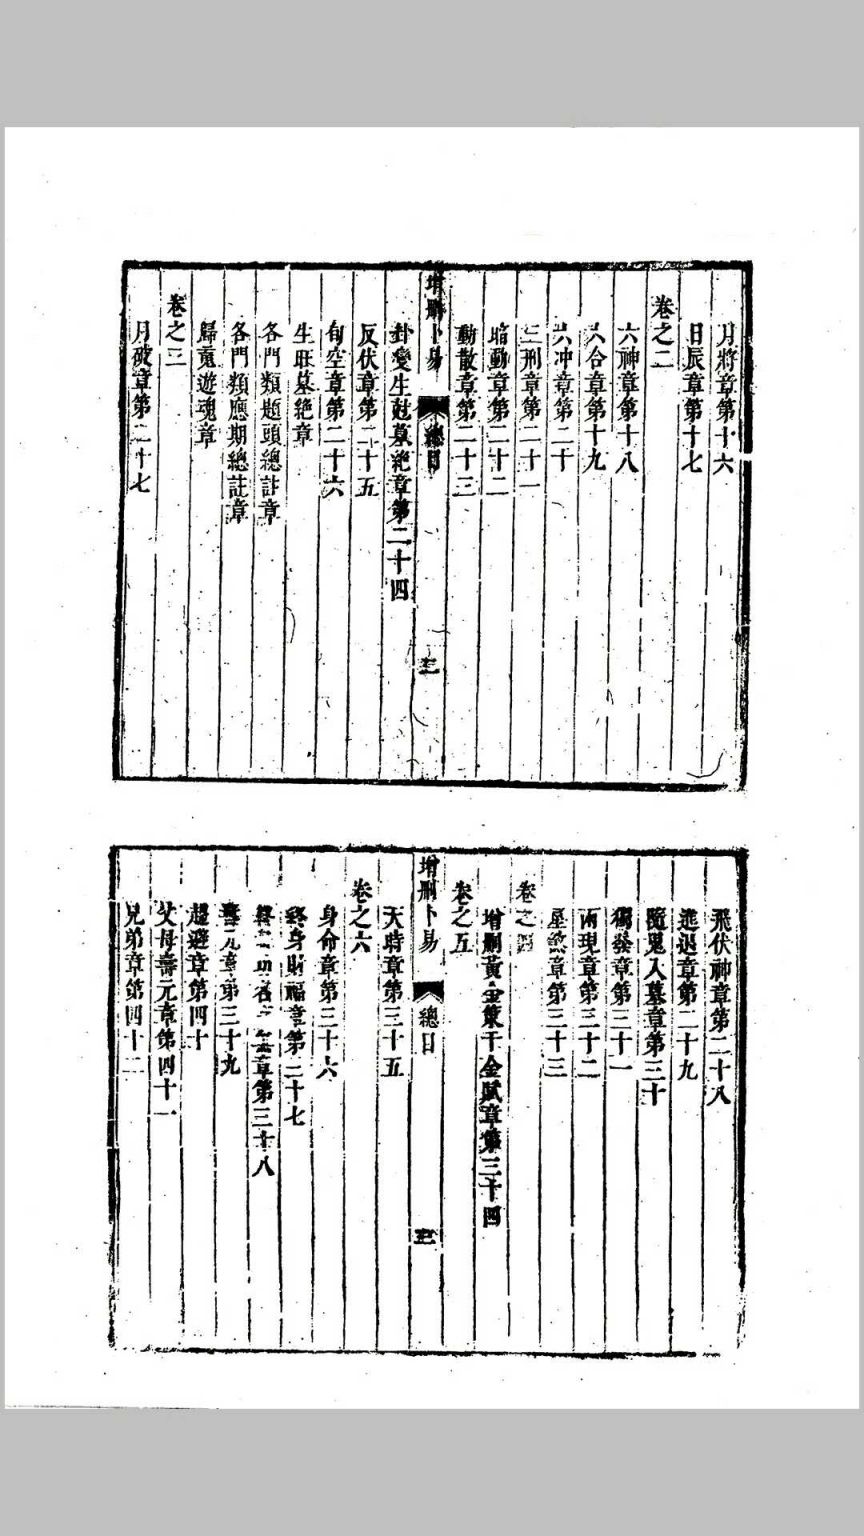 月將章第十六
日辰章第十七
卷之二
六神章第十八
六合章第十九
六冲章第二十
三刑章第二十一
暗動章第二十二
動散章第二十三
增刪卜易
總目
三
卦變生尅墓絶章第二十四
反伏章第二十五
旬空章第二十六
生旺墓絶章
各門類題頭總註章
各門類應期總註章
歸魂遊魂章
卷之三
月破章第二十七
飛伏神章第二十八
進退章第二十九
隨鬼入墓章第三十
獨發章第三十一
兩現章第三十二
星煞章第三十三
卷之四
增刪黃金策千金賦章第三十四
卷之五
增刪卜易
總目
天時章第三十五
卷之六
身命章第三十六
終身財福章第三十七
終身功名章第三十八
壽元章第三十九
趨避章第四十
父母壽元章第四十一
兄弟章第四十二